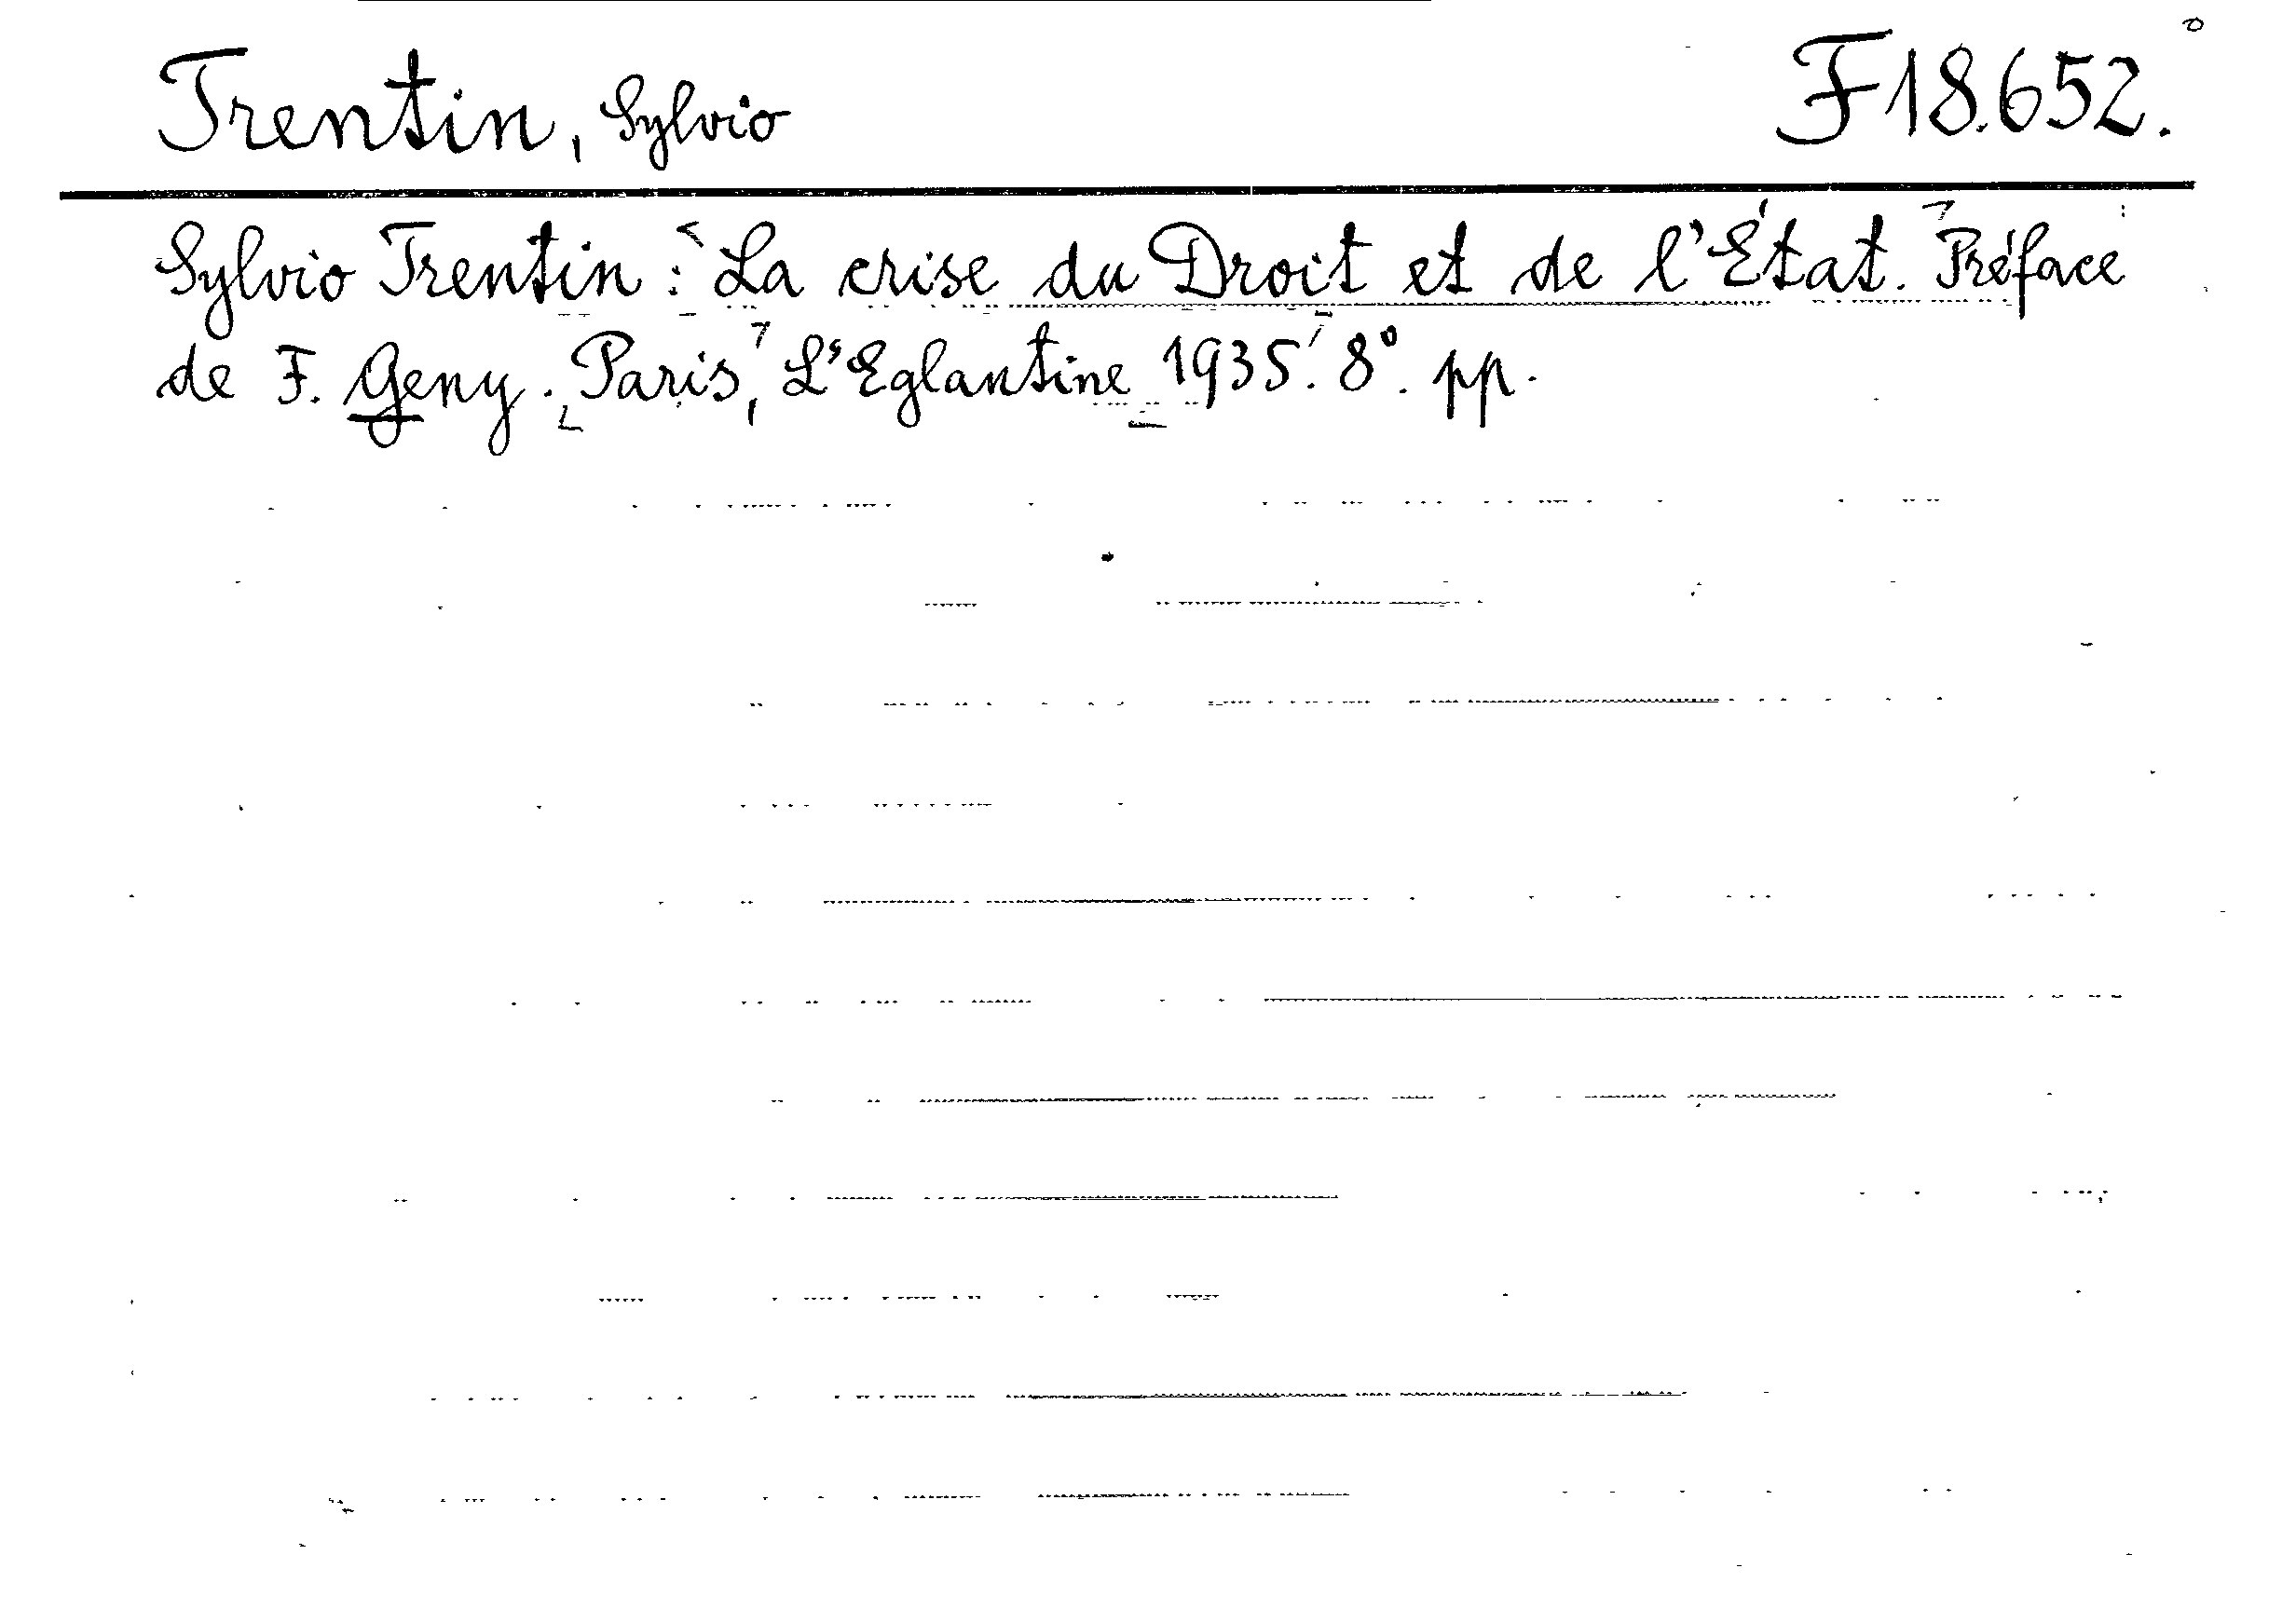 Trentin, Sylvio F 18.652.
Sylvio Trentin: La crise du Droit et de l'État. Préface
de F. Geny. Paris, L'Eglantine 1935. 8°. pp.